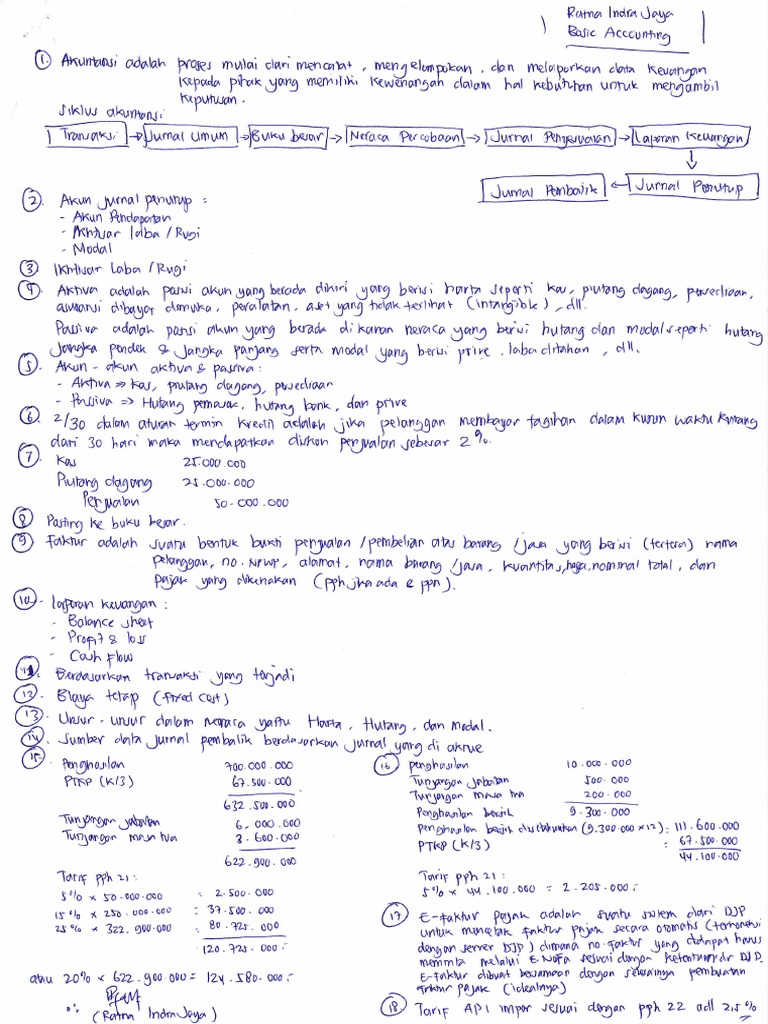 Ratna Indra Jaya
Basic Accounting
1. Akuntansi adalah proses mulai dari mencatat, mengelompokan, dan melaporkan data keuangan
kepada pihak yang memiliki kewenangan dalam hal kebutuhan untuk mengambil
keputusan.
Siklus akuntansi
Transaksi → Jurnal Umum → Buku besar → Neraca Percobaan → Jurnal Penyesuaian → Laporan Keuangan
Jurnal Pembalik ← Jurnal Penutup
2. Akun jurnal penutup :
- Akun Pendapatan
- Ikhtisar laba / Rugi
- Modal
3 Ikhtisar Laba / Rugi
4. Aktiva adalah posisi akun yang berada dikiri yang berisi harta seperti kas, piutang dagang, persediaan,
asuransi dibayar dimuka, peralatan, aset yang tidak terlihat (intangible), dll.
Passiva adalah posisi akun yang berada dikanan neraca yang berisi hutang dan modal seperti hutang
jangka pendek & jangka panjang serta modal yang berisi prive, laba ditahan, dll.
5. Akun - akun aktiva & pasiva :
- Aktiva => Kas, piutang dagang, persediaan
- Passiva => Hutang pemasok, hutang bank, dan prive
6. 2/30 dalam aturan termin kredit adalah jika pelanggan membayar tagihan dalam kurun waktu kurang
dari 30 hari maka mendapatkan diskon penjualan sebesar 2%.
7. Kas 25.000.000
Piutang dagang 25.000.000
Penjualan 50.000.000
8 Posting ke buku besar.
9. Faktur adalah suatu bentuk bukti penjualan / pembelian atas barang / jasa yang berisi (tertera) nama
pelanggan, no. NPWP, alamat, nama barang / jasa, kuantitas, harga, nominal total, dan
pajak yang dikenakan (pph jika ada & ppn).
10. Laporan keuangan :
- Balance sheet
- Profit & loss
- Cash Flow
11. Berdasarkan transaksi yang terjadi
12. Biaya tetap (fixed cost)
13. Unsur - unsur dalam neraca yaitu Harta, Hutang, dan modal.
14. Sumber data jurnal pembalik berdasarkan jurnal yang di akrue
15. Penghasilan 700.000.000
PTKP (K/3) 67.500.000
632.500.000
Tunjangan jabatan 6.000.000
Tunjangan masa tua 3.600.000
622.900.000
Tarif pph 21 :
5% x 50.000.000 = 2.500.000
15% x 250.000.000 = 37.500.000
25% x 322.900.000 = 80.725.000
120.725.000
atau 20% x 622.900.000 = 124.580.000.-
(Ratna Indra Jaya)
16 penghasilan 10.000.000
Tunjangan jabatan 500.000
Tunjangan masa tua 200.000
Penghasilan bersih 9.300.000
Penghasilan bersih disetahunkan (9.300.000 x 12) : 111.600.000
PTKP (K/3) = 67.500.000
44.100.000
Tarif pph 21 :
5% x 44.100.000 = 2.205.000.-
17. E-faktur pajak adalah suatu sistem dari DJP
untuk mencetak faktur pajak secara otomatis (terkoneksi
dengan server DJP) dimana no. faktur yang didapat harus
meminta melalui E-Nofa sesuai dengan ketentuan dr DJP.
E-faktur dibuat bersamaan dengan selesainya pembuatan
faktur pajak (idealnya)
18. Tarif API impor sesuai dengan pph 22 adl 2,5%